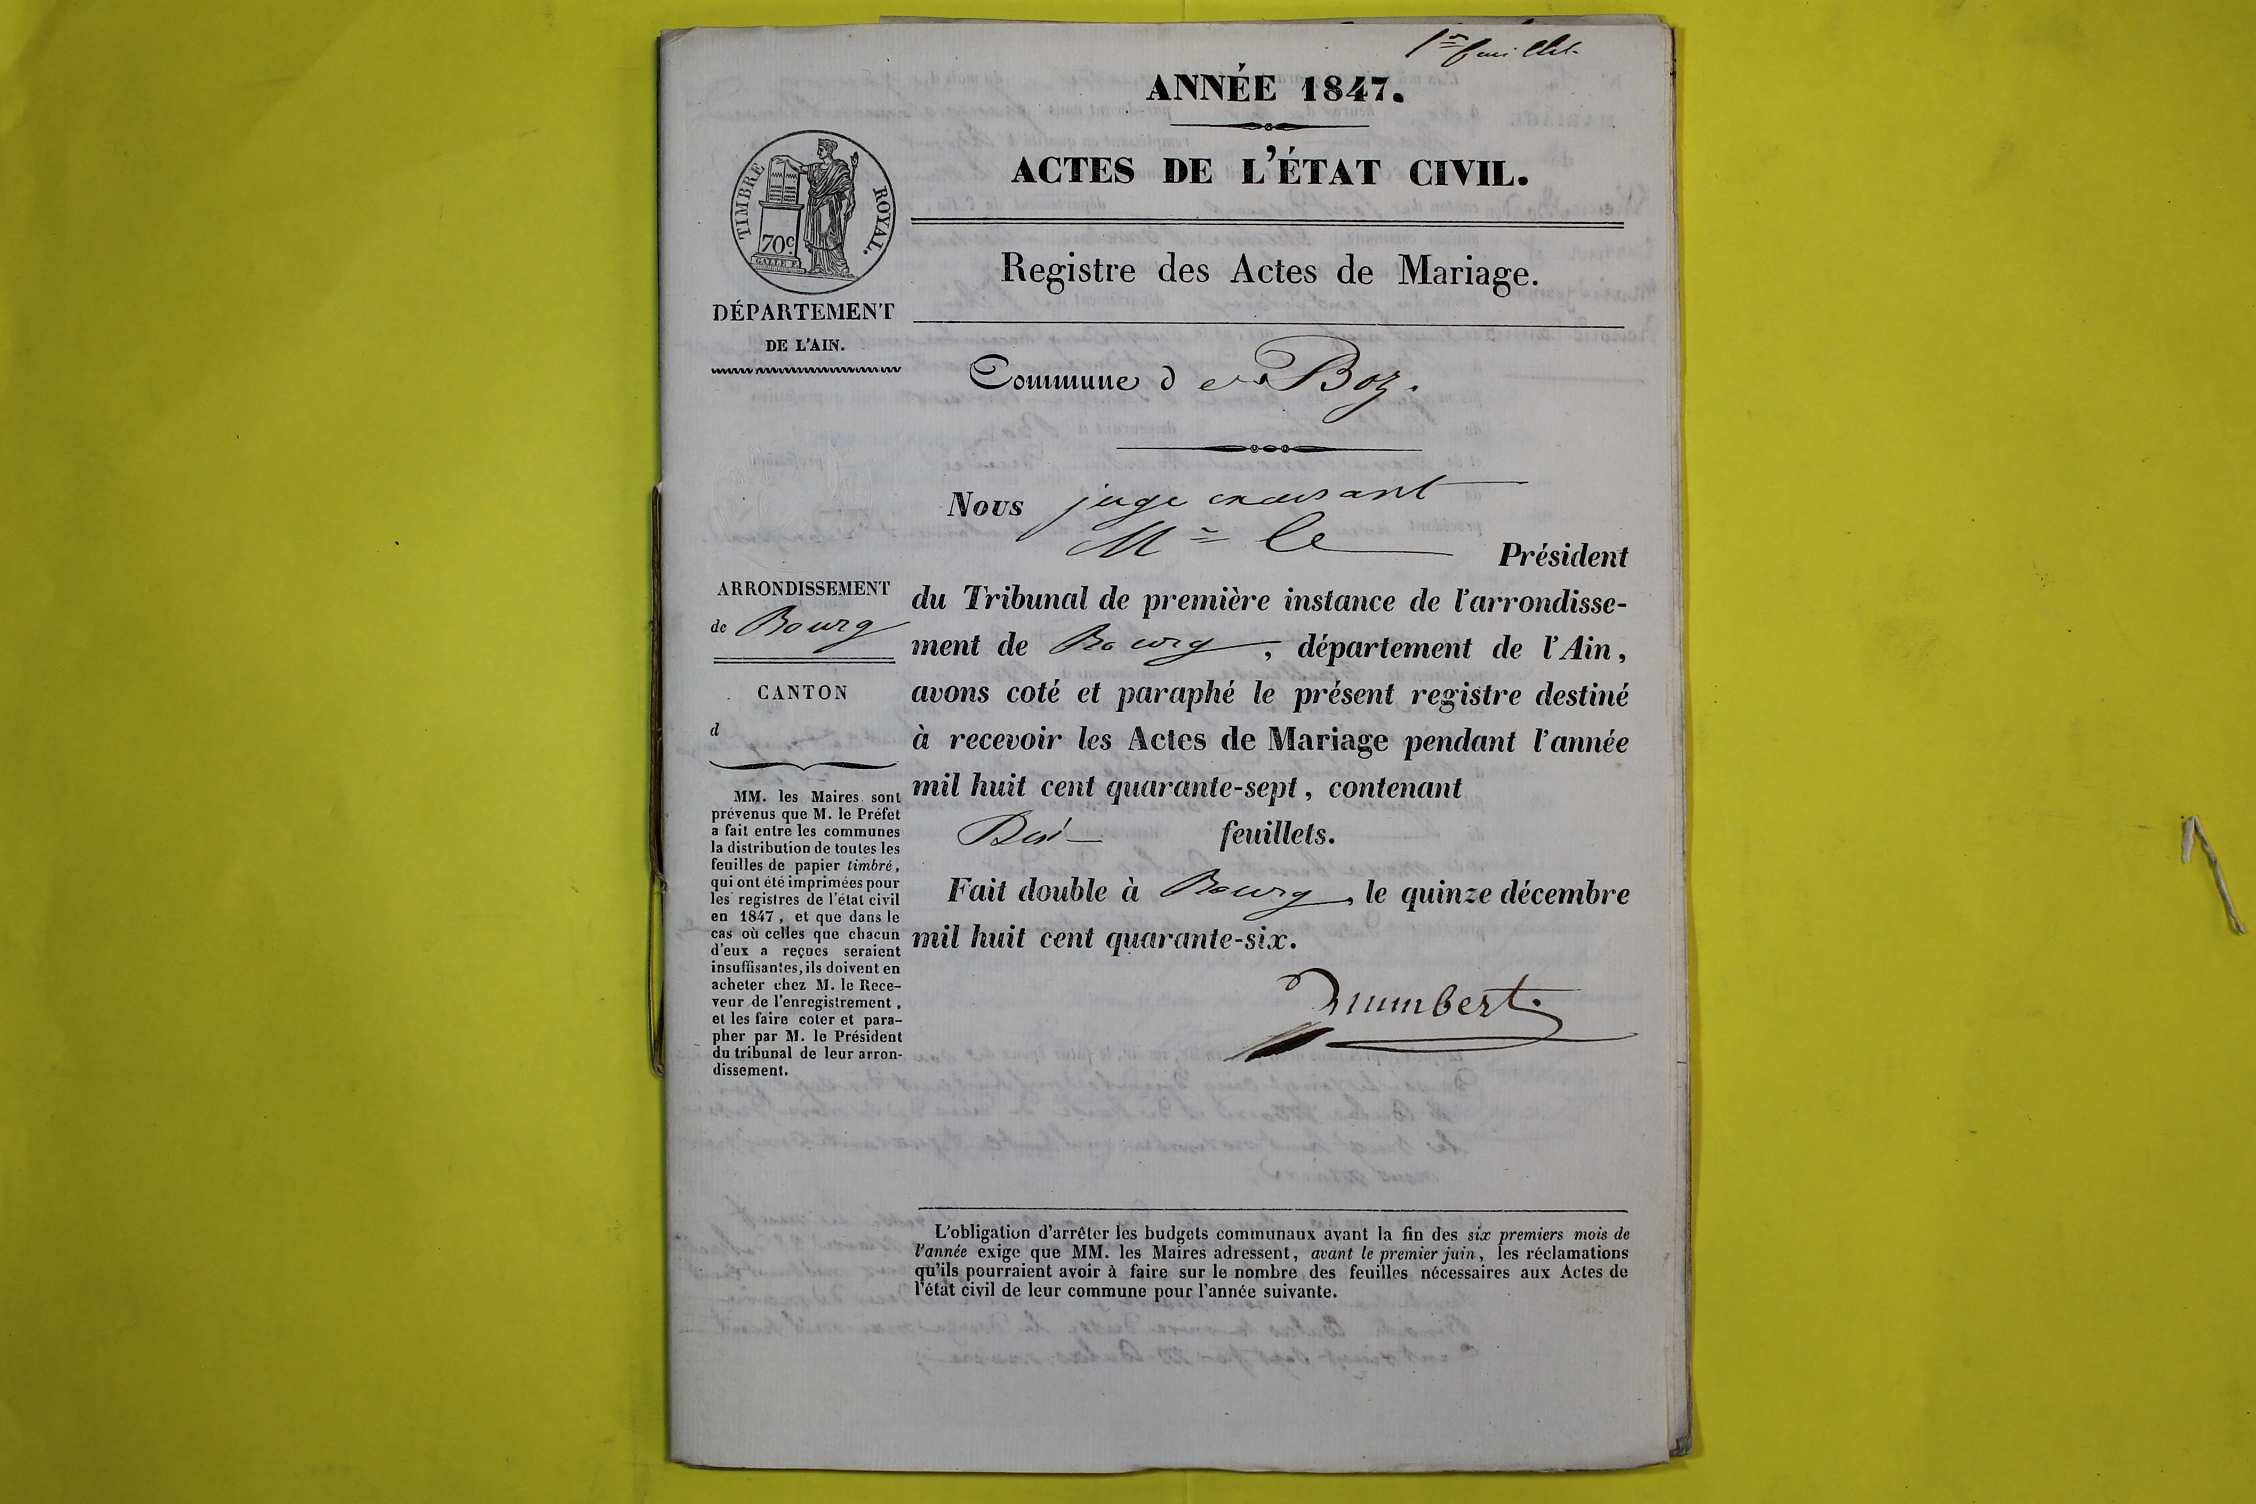 1er feuillet
ANNÉE 1847.
ACTES DE L'ÉTAT CIVIL.
TIMBRE ROYAL.
70c
GALLE F.
Registre des Actes de Mariage.
DÉPARTEMENT
DE L'AIN.
Commune de Boz.
Nous juge
Mr le Président
ARRONDISSEMENT
de Bourg
CANTON
d
du Tribunal de première instance de l'arrondisse-
ment de Bourg, département de l'Ain,
avons coté et paraphé le présent registre destiné
à recevoir les Actes de Mariage pendant l'année
mil huit cent quarante-sept, contenant
feuillets.
Fait double à Bourg, le quinze décembre
mil huit cent quarante-six.
MM. les Maires sont
prévenus que M. le Préfet
a fait entre les communes
la distribution de toutes les
feuilles de papier timbré,
qui ont été imprimées pour
les registres de l'état civil
en 1847, et que dans le
cas où celles que chacun
d'eux a reçues seraient
insuffisantes, ils doivent en
acheter chez M. le Rece-
veur de l'enregistrement,
et les faire coter et para-
pher par M. le Président
du tribunal de leur arron-
dissement.
L'obligation d'arrêter les budgets communaux avant la fin des six premiers mois de
l'année exige que MM. les Maires adressent, avant le premier juin, les réclamations
qu'ils pourraient avoir à faire sur le nombre des feuilles nécessaires aux Actes de
l'état civil de leur commune pour l'année suivante.